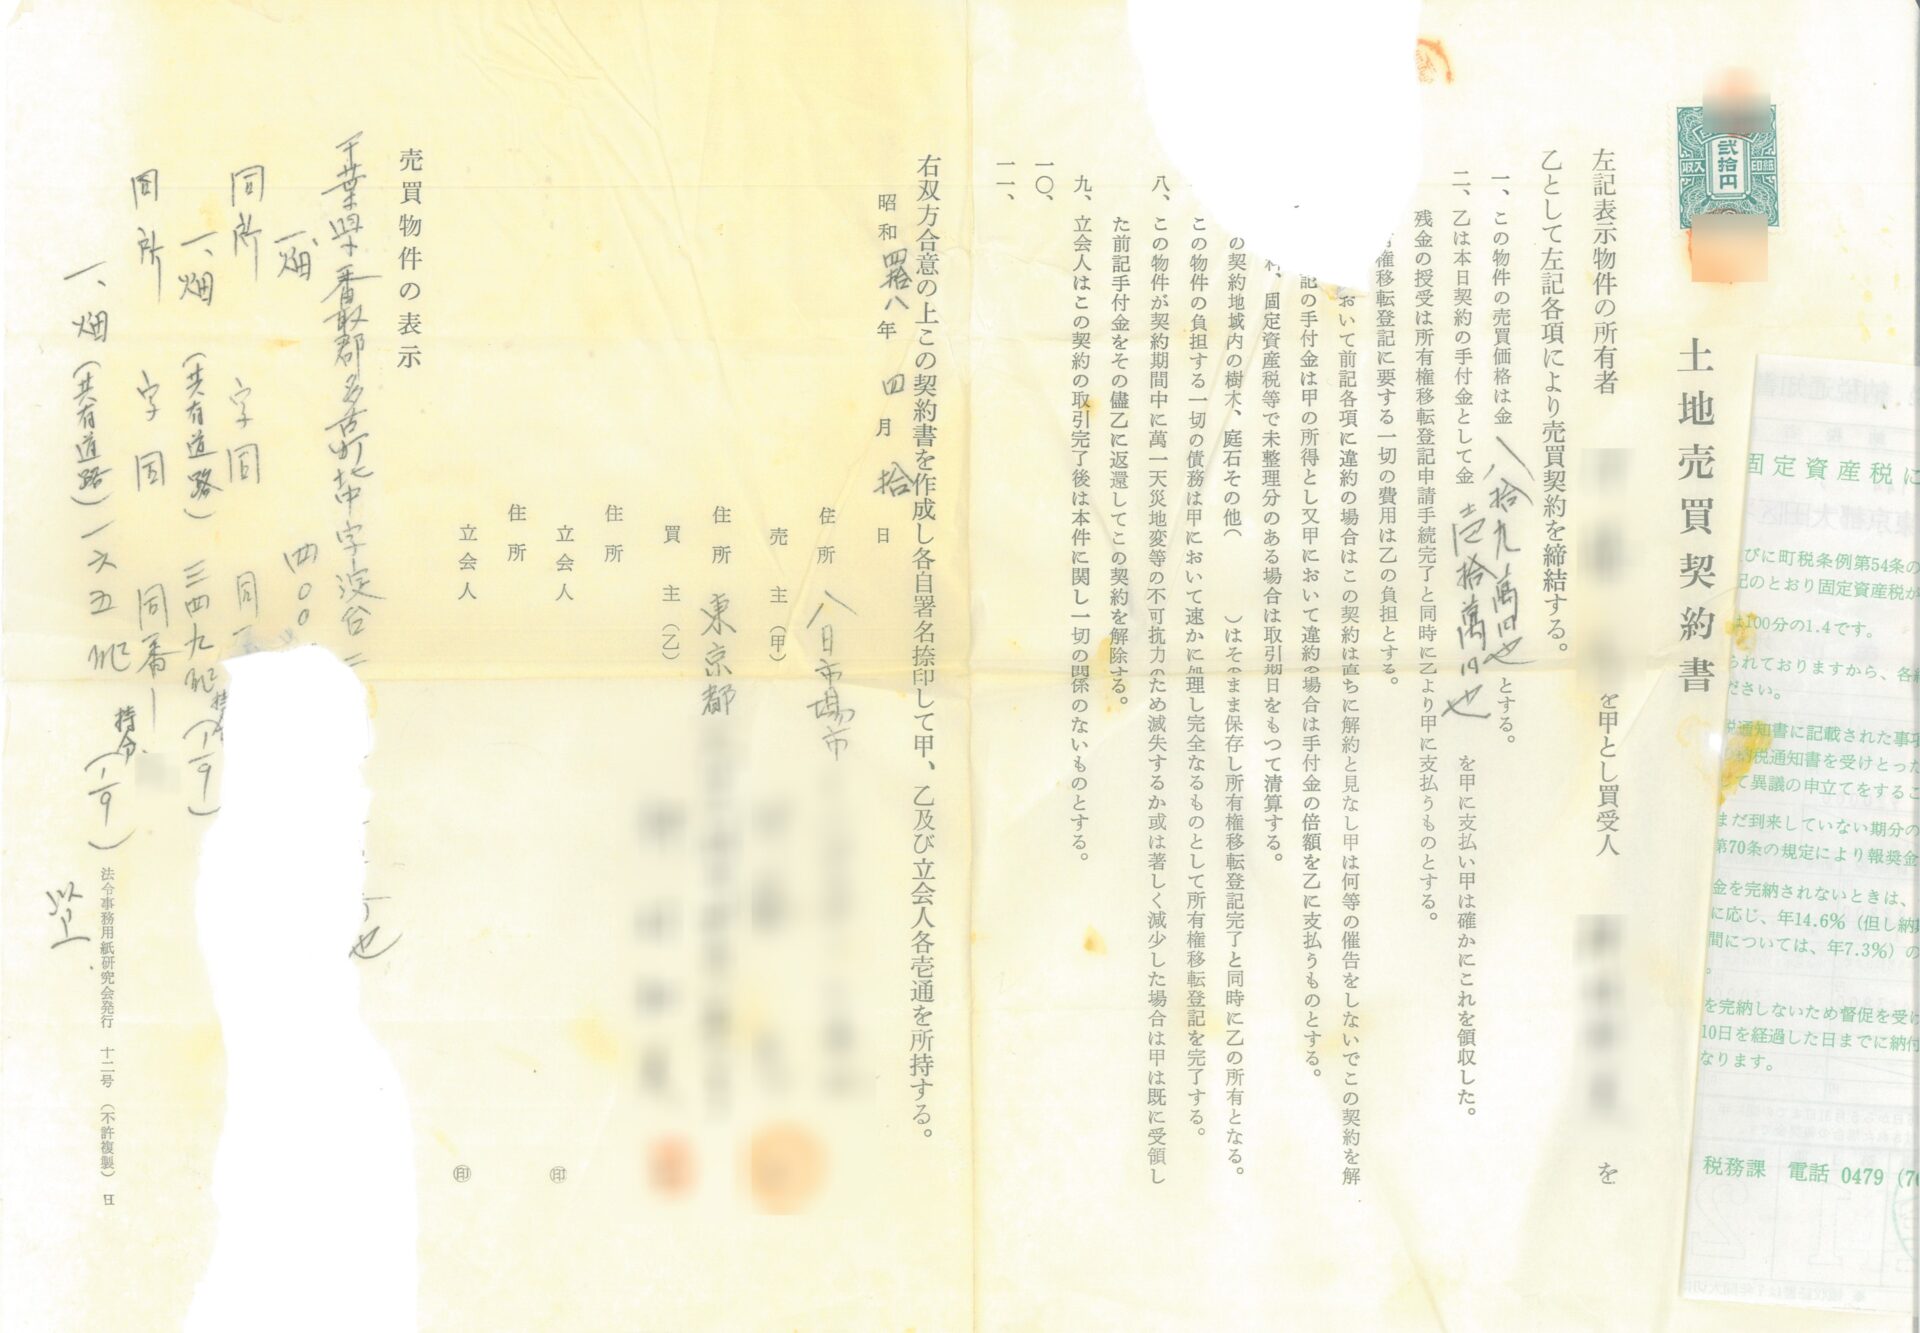 土地売買契約書
収入印紙
弐拾円
左記表示物件の所有者 を甲とし買受人 を
乙として左記各項により売買契約を締結する。
一、この物件の売買価格は金 八拾九萬円也 とする。
二、乙は本日契約の手付金として金 壱拾萬円也 を甲に支払い甲は確かにこれを領収した。
残金の授受は所有権移転登記申請手続完了と同時に乙より甲に支払うものとする。
権移転登記に要する一切の費用は乙の負担とする。
おいて前記各項に違約の場合はこの契約は直ちに解約と見なし甲は何等の催告をしないでこの契約を解
記の手付金は甲の所得とし又甲において違約の場合は手付金の倍額を乙に支払うものとする。
、固定資産税等で未整理分のある場合は取引期日をもつて清算する。
の契約地域内の樹木、庭石その他( )はそのまま保存し所有権移転登記完了と同時に乙の所有となる。
この物件の負担する一切の債務は甲において速かに処理し完全なるものとして所有権移転登記を完了する。
八、この物件が契約期間中に萬一天災地変等の不可抗力のため滅失するか或は著しく減少した場合は甲は既に受領し
た前記手付金をその儘乙に返還してこの契約を解除する。
九、立会人はこの契約の取引完了後は本件に関し一切の関係のないものとする。
一〇、
一一、
右双方合意の上この契約書を作成し各自署名捺印して甲、乙及び立会人各壱通を所持する。
昭和四拾八年 四月 拾日
住所 八日市場市
売主(甲)
住所 東京都
買主(乙)
住所
立会人 ㊞
住所
立会人 ㊞
売買物件の表示
千葉県香取郡多古町 字 台
一、畑 四〇〇
同所 字同 同
一、畑(共有道路)三四九 持分(1/9)
同所 字同 同番
一、畑(共有道路)一六五 持分(1/9)
以上
法令事務用紙研究会発行 十二号 (不許複製) 日
固定資産税に
びに町税条例第54条の
記のとおり固定資産税が
100分の1.4です。
られておりますから、各
ださい。
税通知書に記載された事項
納税通知書を受けとった
て異議の申立てをするこ
まだ到来していない期分の
第70条の規定により報奨金
金を完納されないときは、
に応じ、年14.6%(但し納
間については、年7.3%)の
。
を完納しないため督促を受け
10日を経過した日までに納付
なります。
税務課 電話 0479 (7